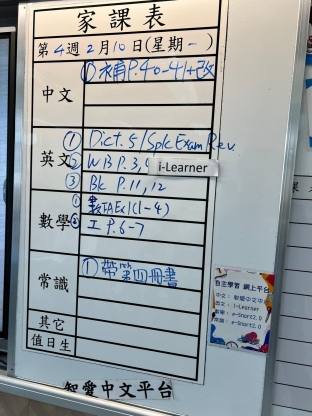 家課表
第4週2月10日(星期一)
中文
① 教育P.40-41+改
英文
① Dict. 5/Spk Exam Rev.
② WB P.3,
i-Learner
③ Bk P.11,12
數學
① 數FAEx1(1-4)
② 工 P.6-7
常識
① 帶第四冊書
其它
值日生
智愛中文平台
自主學習 網上平台
中文: 智愛中文平台
英文: i-Learner
數學: e-Smart2.0
常識: e-Smart2.0